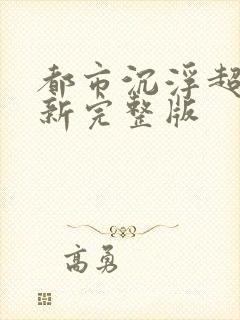 都市沉浮超
新完整版
高勇